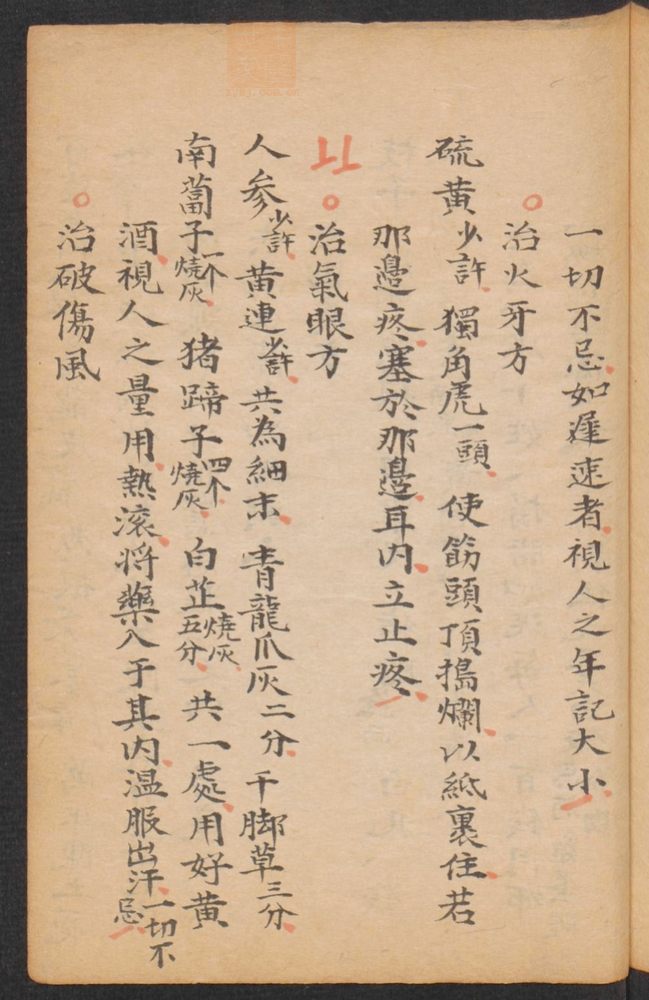 一切不忌如遲速者視人之年記大小
治火牙方
硫黄少許獨角虎一頭使筋頭頂搗爛以紙裹住若
那邊疼塞於那邊耳内立止疼
治氣眼方
人参少許黄連少許共為細末青龍爪灰二分千脚草三分
南蔔子一个燒灰猪蹄子四个燒灰白芷五分燒灰共一處用好黄
酒視人之量用熱滚将藥入于其内温服出汗一切不忌
治破傷風